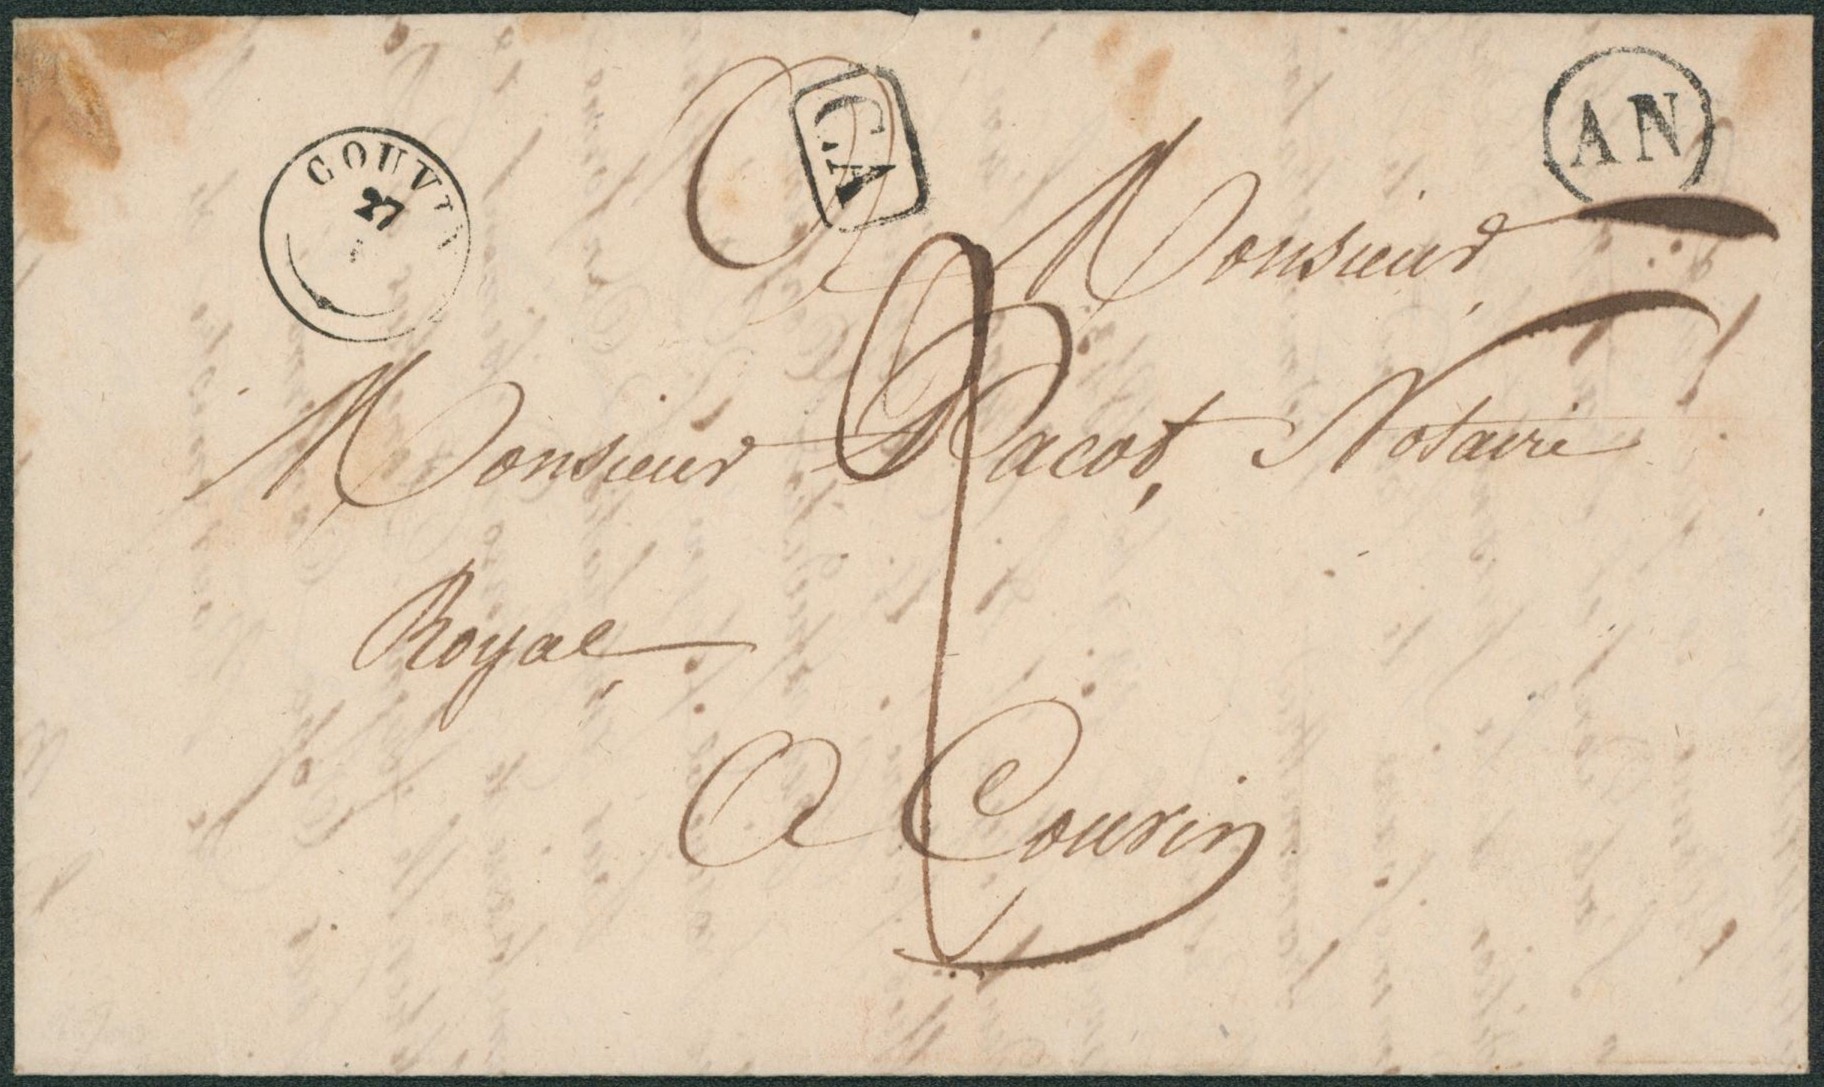 COUVIN
27
CA
AN
A Monsieur
Monsieur Racot, Notaire
Royal
A Couvin